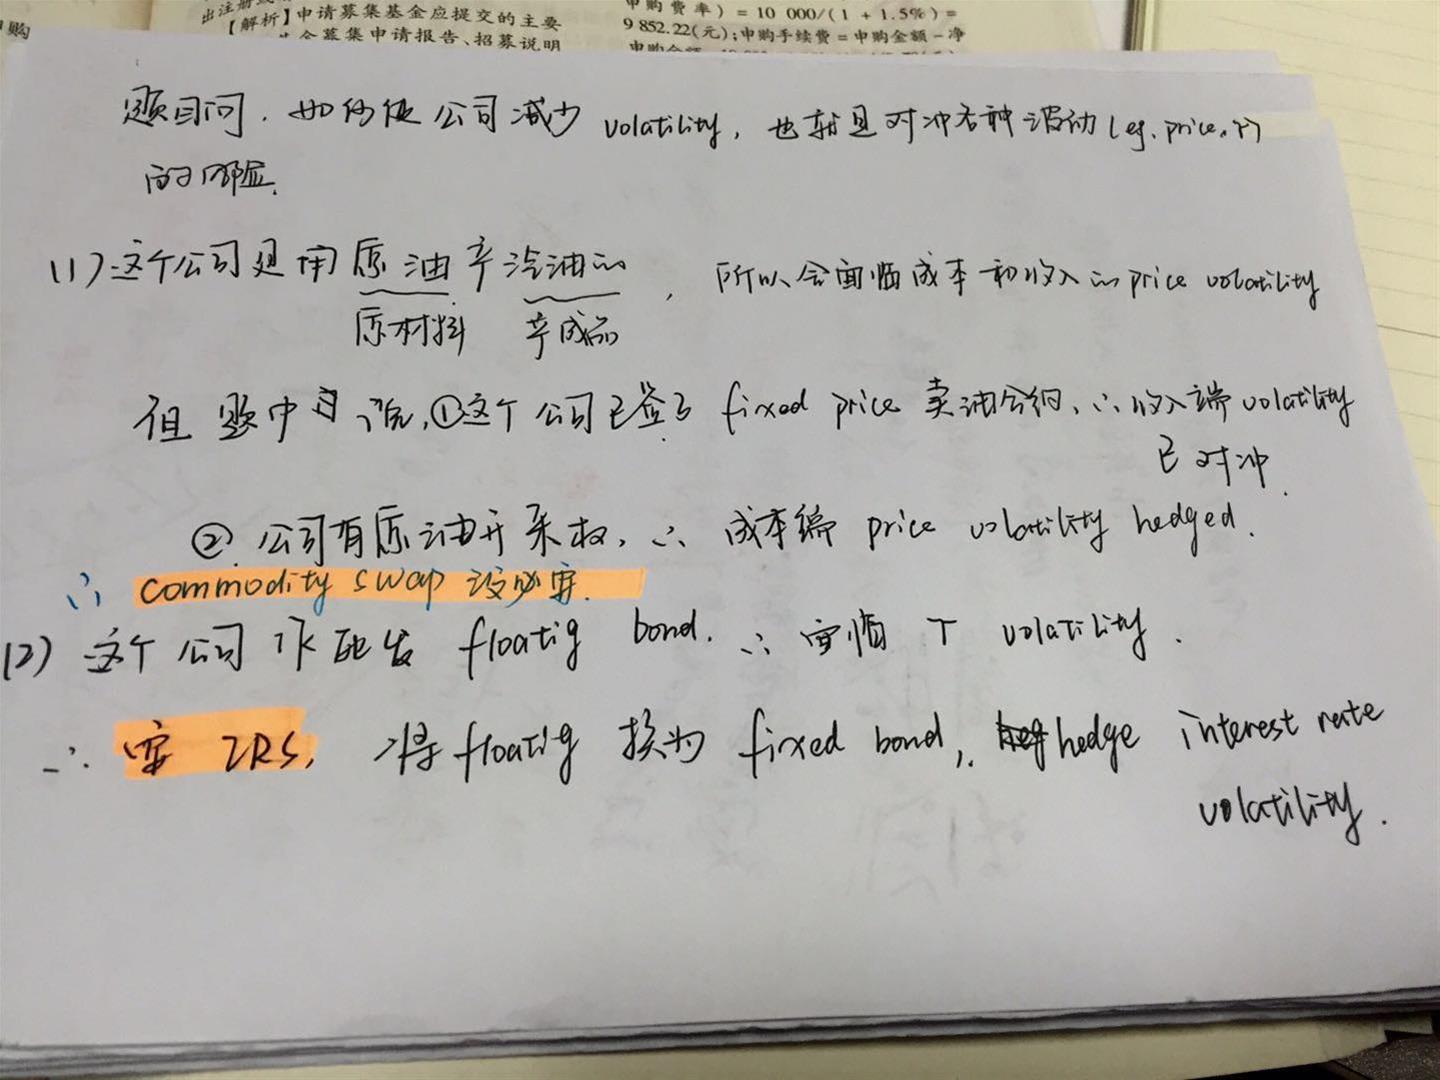 购
【解析】申请募集基金应提交的主要
金募集申请报告、招募说明
申购费率) = 10 000/(1 + 1.5%) =
9 852.22(元);申购手续费 = 申购金额 - 净
题目问,如何使公司减少 volatility, 也就是对冲各种波动 (eg. price, r)
的风险.
(1) 这个公司是用原油产汽油的, 所以会面临成本和收入的 price volatility
原材料 产成品
但题中有说,①这个公司已签了 fixed price 卖油合约, ∴收入端 volatility
已对冲.
② 公司有原油开采权, ∴ 成本端 price volatility hedged.
∴ commodity swap 没必要.
(2) 这个公司 floatig bond. ∴ 面临 r volatility.
∴ 要 IRS, 将 floatig 换为 fixed bond, ∴ hedge interest rate
volatility.